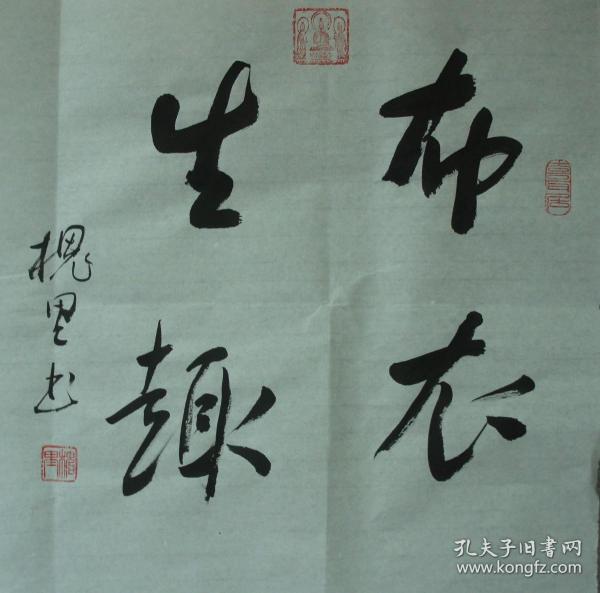 布衣
生趣
槐里书
槐里
孔夫子旧书网
www.kongfz.com